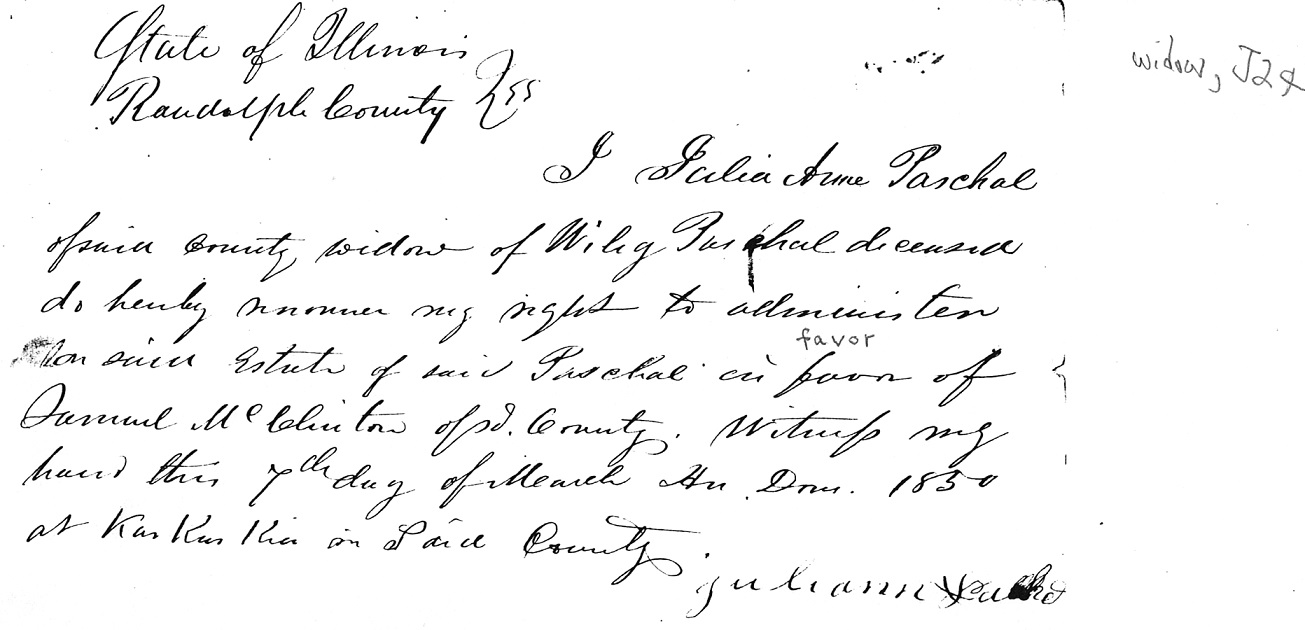 State of Illinois
widow, J2&
Randolph County } ss
I Julia Anne Paschal
of said County widow of Wiley Paschal deceased
do hereby renounce my right to administer
on said Estate of said Paschal in favor of
favor
Samuel McClinton of sd. County. Witness my
hand this 7th day of March An. Dom. 1850
at KasKasKia in Said County.
Juliann